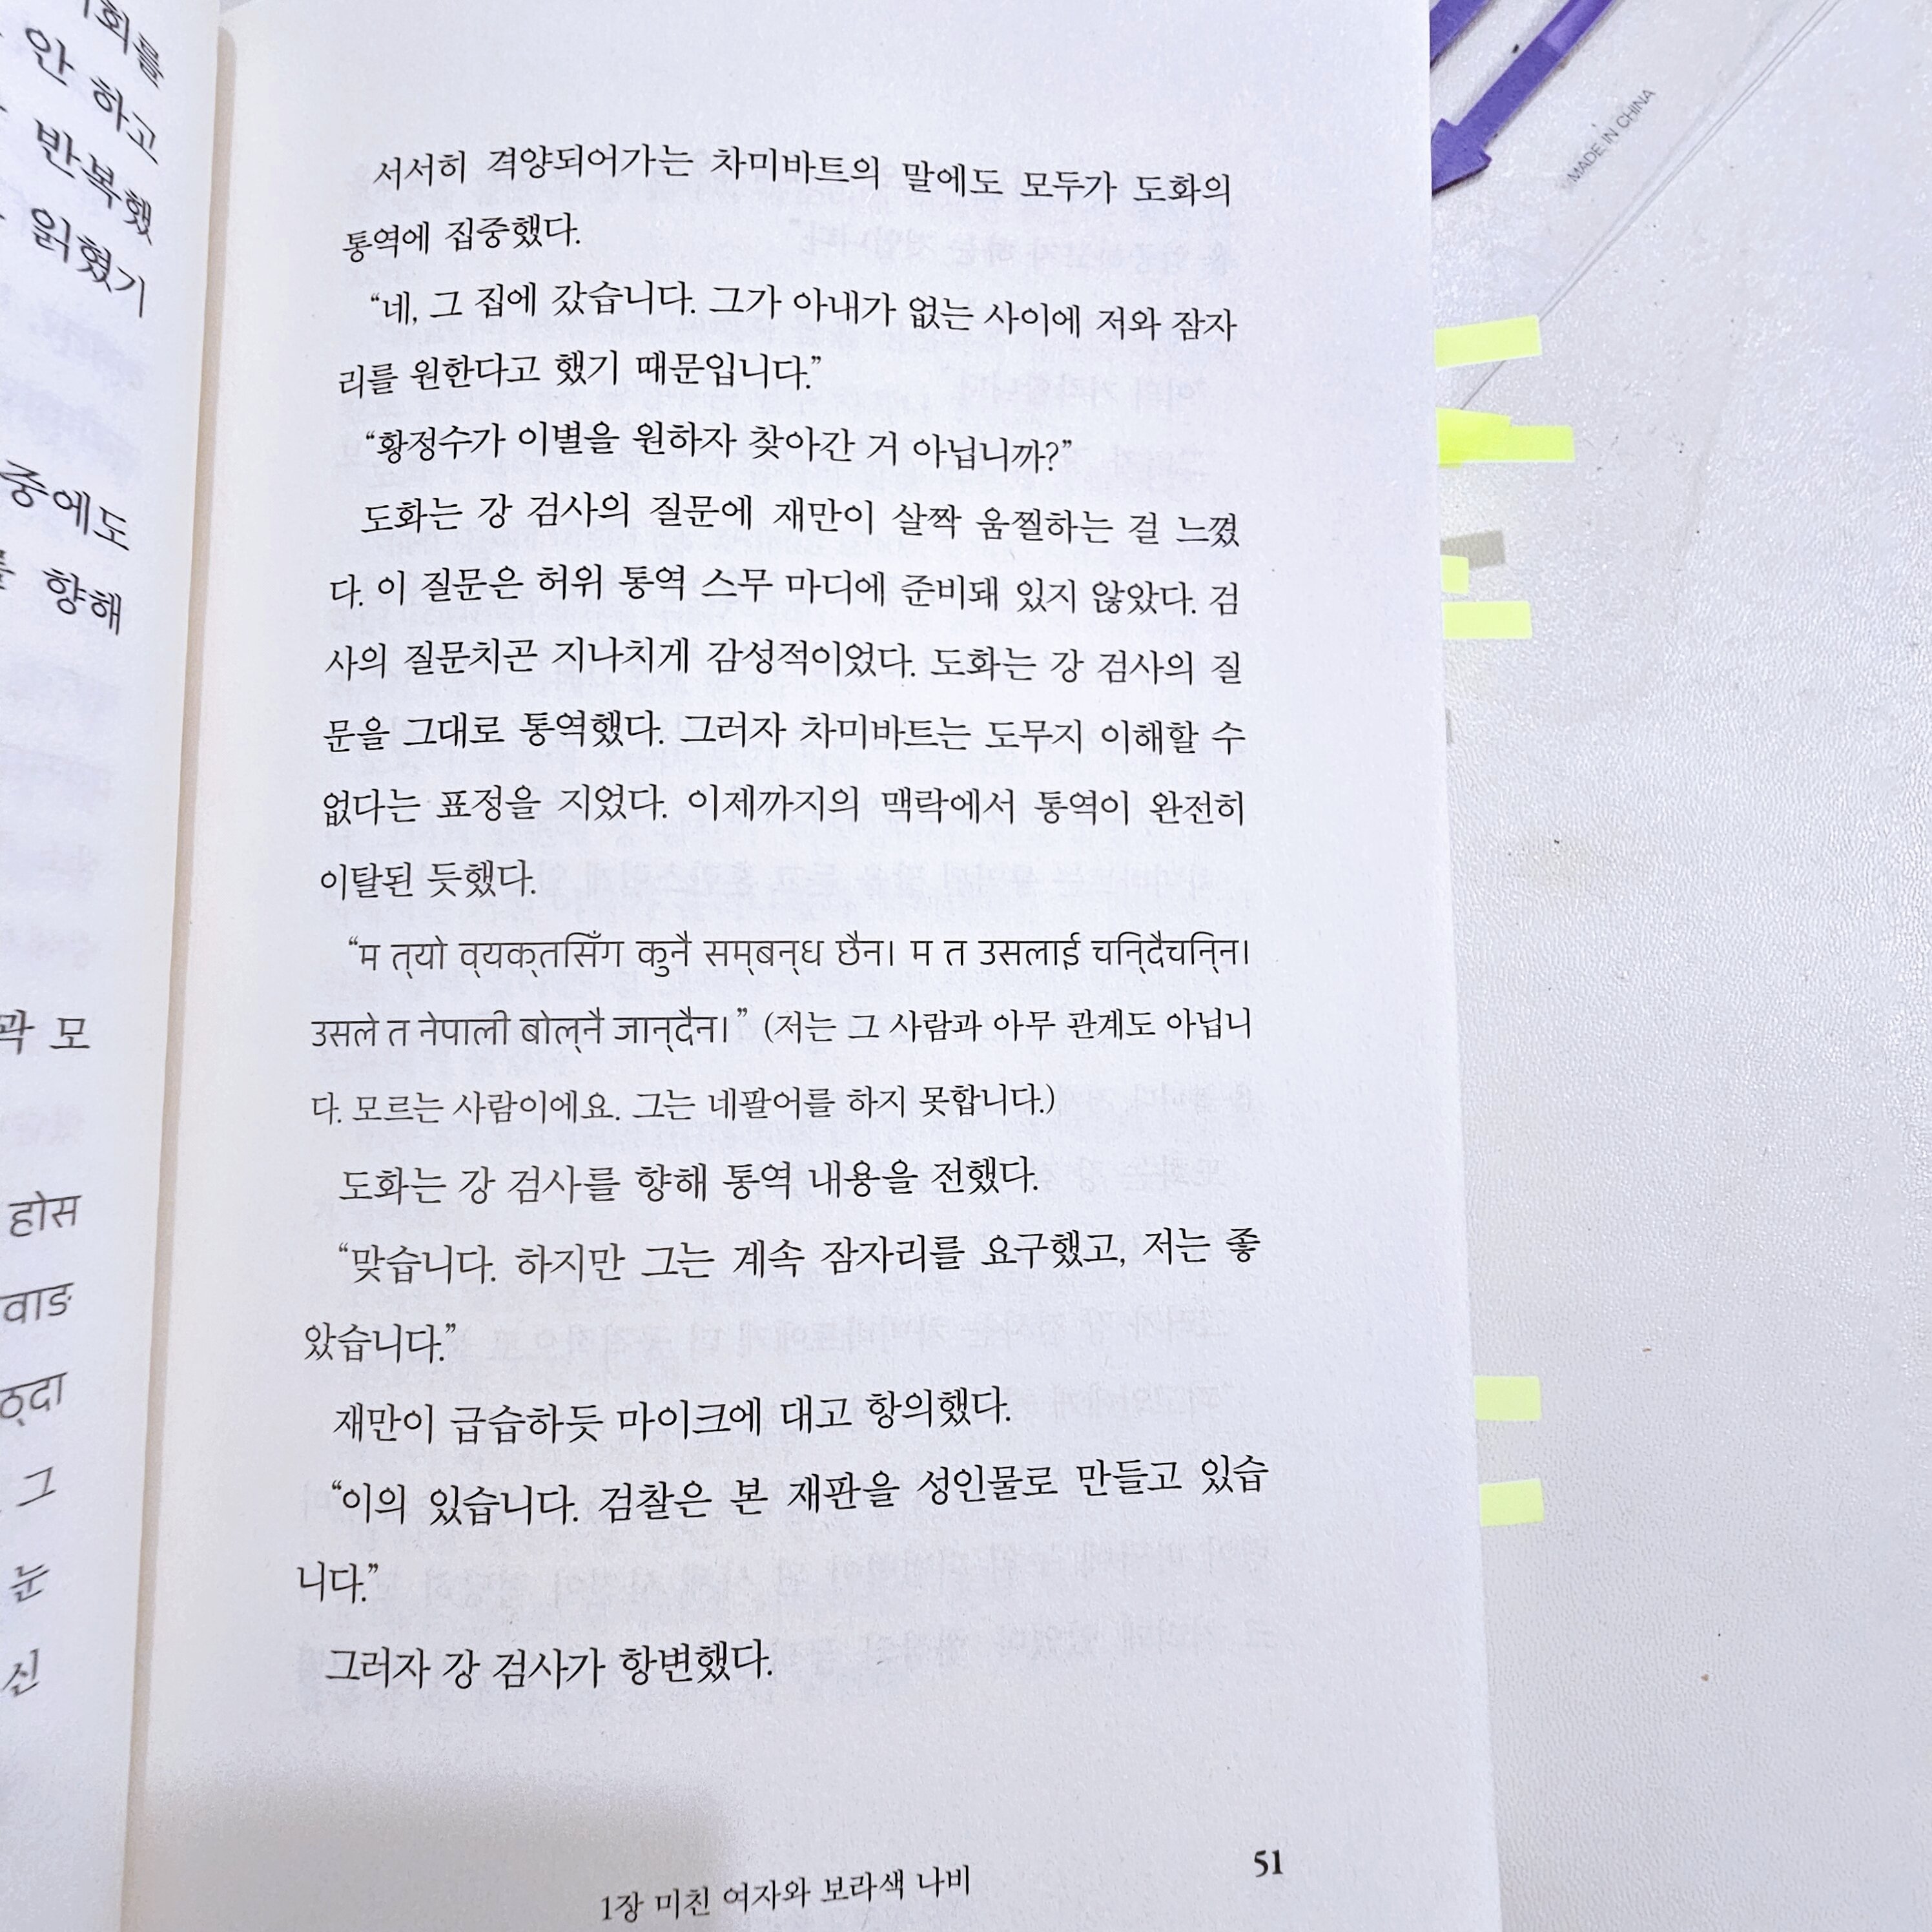 회를
안 하고
반복했
읽혔기
중에도
향해
곽 모
होस
वाङ
ठ्दा
그
눈
신
서서히 격양되어가는 차미바트의 말에도 모두가 도화의
통역에 집중했다.
“네, 그 집에 갔습니다. 그가 아내가 없는 사이에 저와 잠자
리를 원한다고 했기 때문입니다.”
“황정수가 이별을 원하자 찾아간 거 아닙니까?”
도화는 강 검사의 질문에 재만이 살짝 움찔하는 걸 느꼈
다. 이 질문은 허위 통역 스무 마디에 준비돼 있지 않았다. 검
사의 질문치곤 지나치게 감성적이었다. 도화는 강 검사의 질
문을 그대로 통역했다. 그러자 차미바트는 도무지 이해할 수
없다는 표정을 지었다. 이제까지의 맥락에서 통역이 완전히
이탈된 듯했다.
“म त्‌यो व्‌यक्‌तसिँग कुनै सम्‌बन्‌ध छैन। म त उसलाई चनि्‌दैचनि्‌न।
उसले त नेपाली बोल्‌नै जान्‌दैन।” (저는 그 사람과 아무 관계도 아닙니
다. 모르는 사람이에요. 그는 네팔어를 하지 못합니다.)
도화는 강 검사를 향해 통역 내용을 전했다.
“맞습니다. 하지만 그는 계속 잠자리를 요구했고, 저는 좋
았습니다.”
재만이 급습하듯 마이크에 대고 항의했다.
“이의 있습니다. 검찰은 본 재판을 성인물로 만들고 있습
니다.”
그러자 강 검사가 항변했다.
1장 미친 여자와 보라색 나비
51
MADE IN CHINA